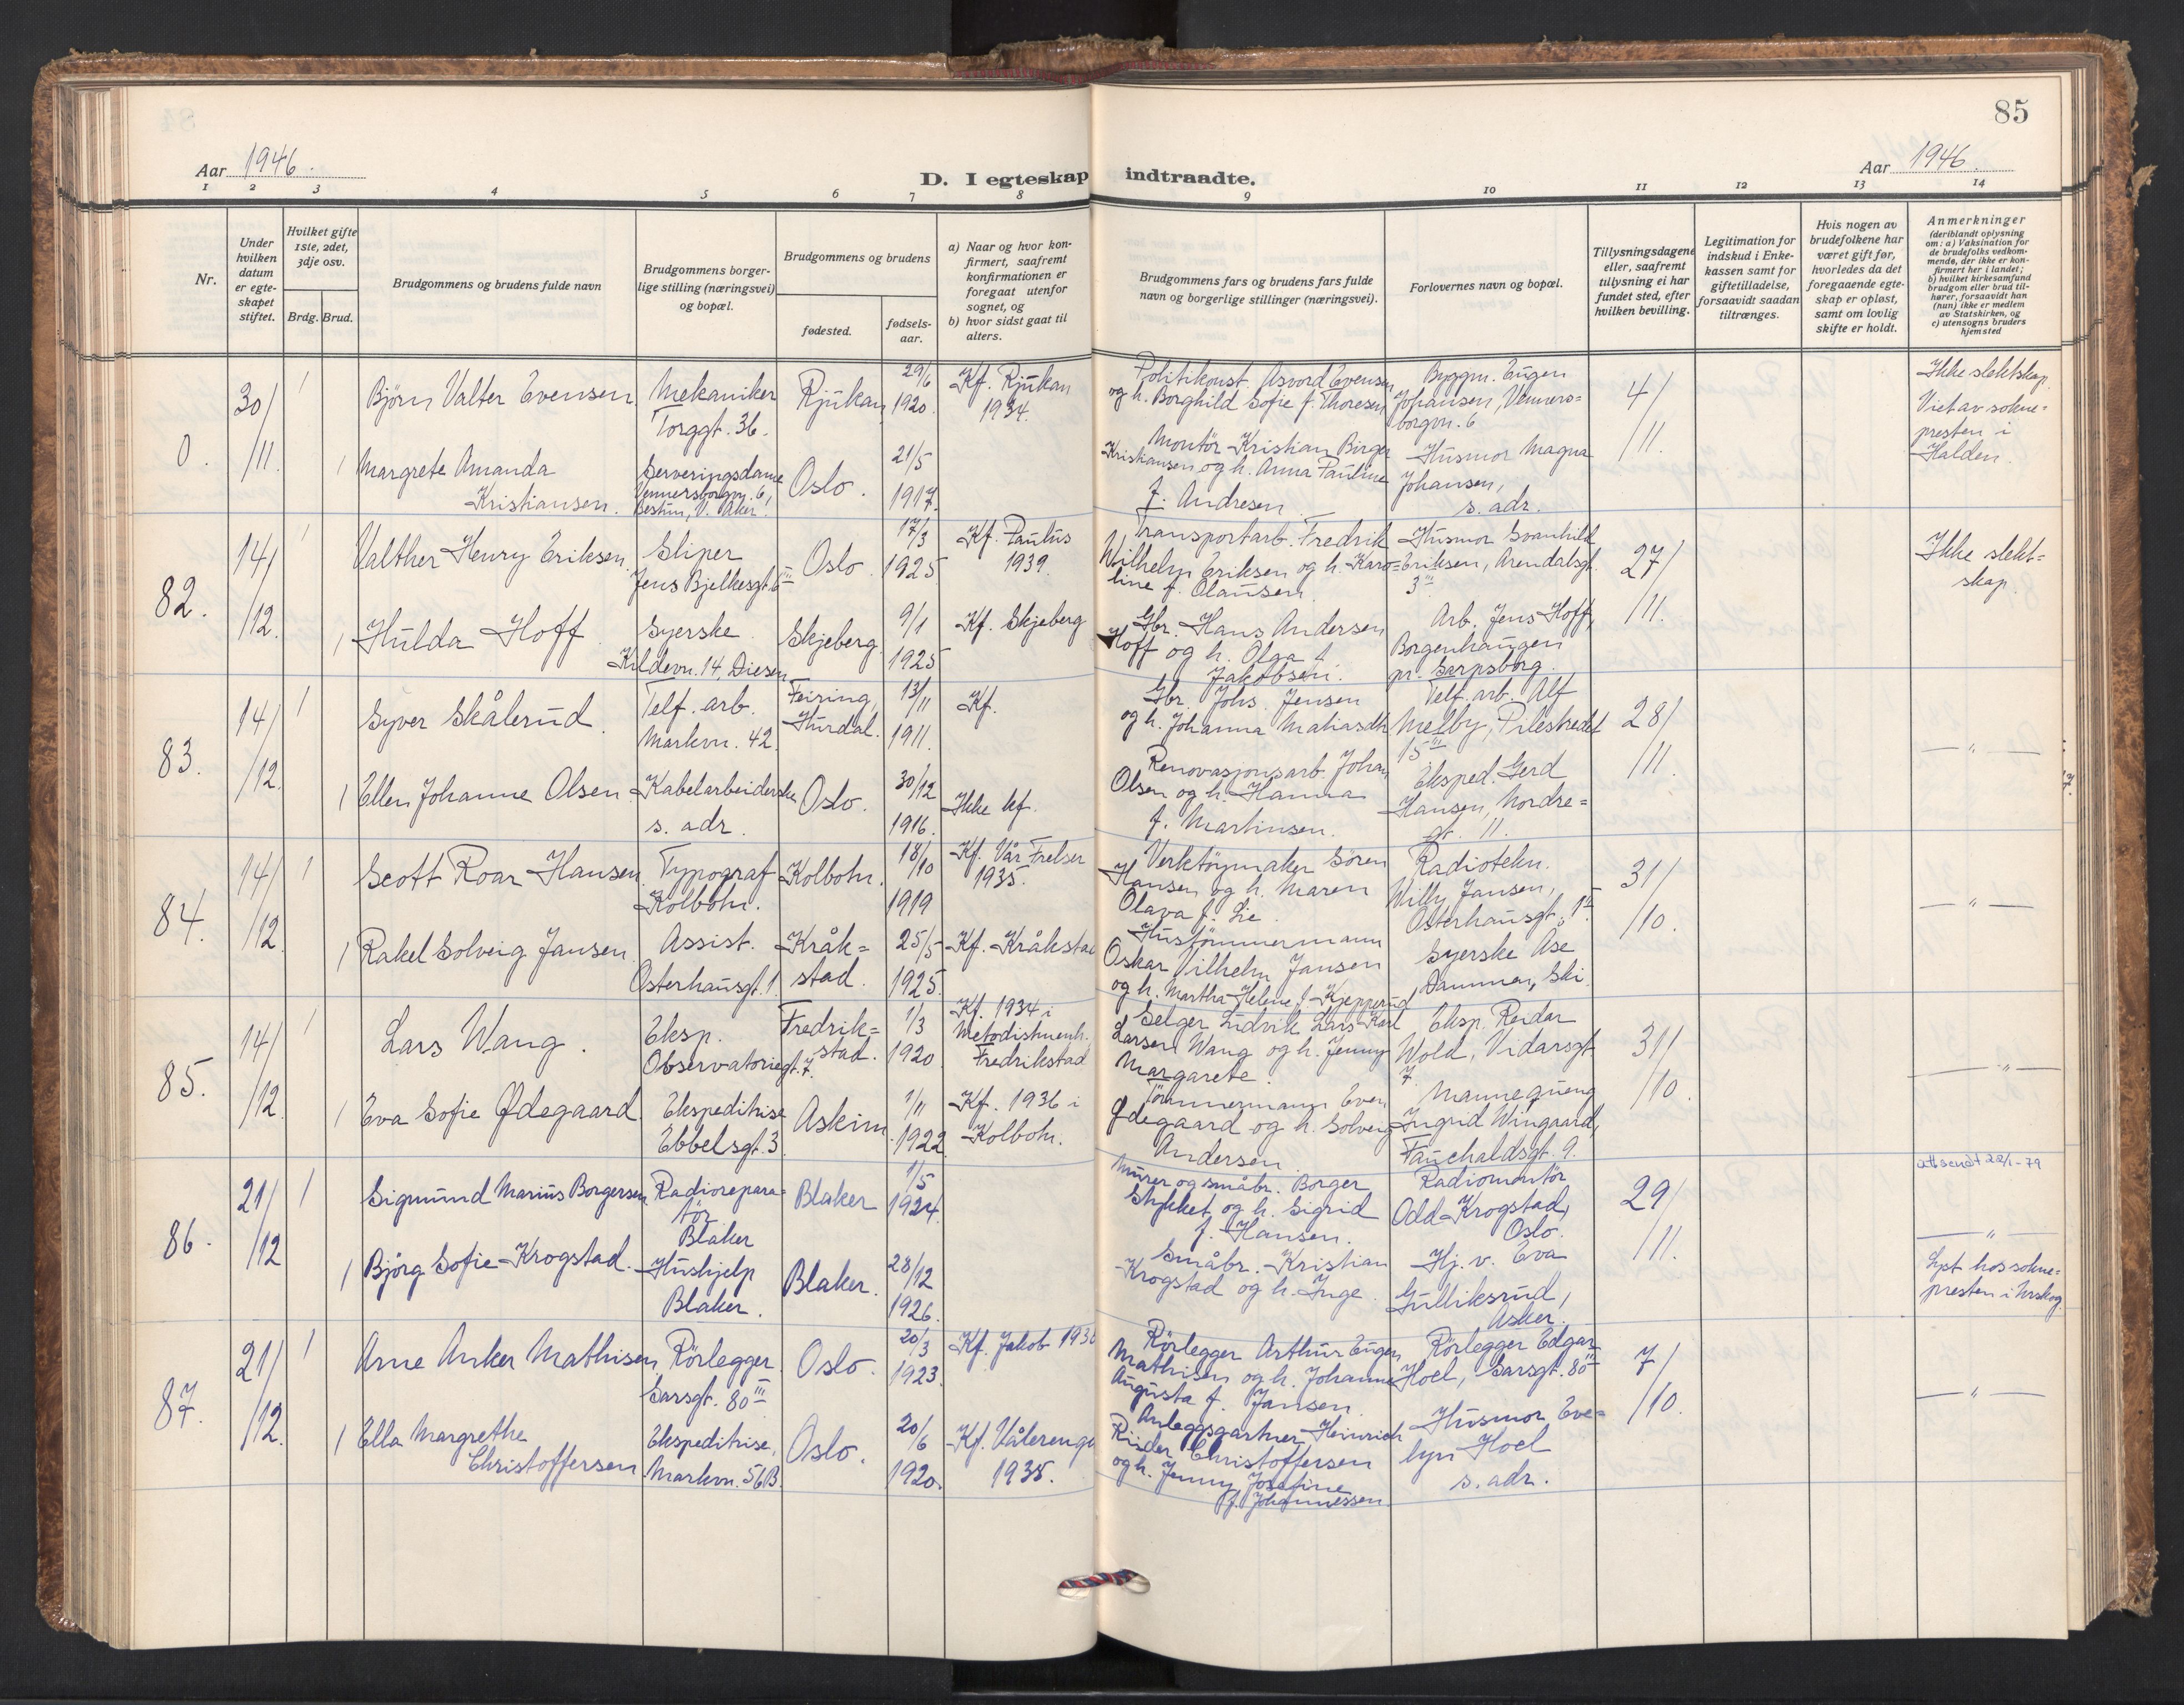 85
Aar 1946.
D. I egteskap indtraadte.
Aar 1946.
1 2 3 4 5 6 7 8 9 10 11 12 13 14
Nr.
Under
hvilken
datum
er egte-
skapet
stiftet.
Hvilket gifte
1ste, 2det,
3dje osv.
Brdg. Brud.
Brudgommens og brudens fulde navn
Brudgommens borger-
lige stilling (næringsvei)
og bopæl.
Brudgommens og brudens
fødested.
fødsels-
aar.
a) Naar og hvor kon-
firmert, saafremt
konfirmationen er
foregaat utenfor
sognet, og
b) hvor sidst gaat til
alters.
Brudgommens fars og brudens fars fulde
navn og borgerlige stillinger (næringsvei).
Forlovernes navn og bopæl.
Tillysningsdagene
eller, saafremt
tillysning ei har
fundet sted, efter
hvilken bevilling.
Legitimation for
indskud i Enke-
kassen samt for
giftetilladelse,
forsaavidt saadan
tiltrænges.
Hvis nogen av
brudefolkene har
været gift før,
hvorledes da det
foregaaende egte-
skap er opløst,
samt om lovlig
skifte er holdt.
Anmerkninger
(deriblandt oplysning
om: a) Vaksination for
de brudefolks vedkom-
mende, der ikke er kon-
firmert her i landet;
b) hvilket kirkesamfund
brudgom eller brud til-
hører, forsaavidt han
(hun) ikke er medlem
av Statskirken, og
c) utensogns bruders
hjemsted
0.
30/
/11.
1
Bjørn Valter Evensen
Mekaniker
Torggt. 36.
Rjukan
29/6
1920.
Kf. Rjukan
1934.
Politikonst. Asvord Evensen
og h. Borghild Sofie f. Thoresen
Byggm. Eugen
Johansen, Venners-
borgvn. 6
4/
/11.
Ikke slektskap.
Viet av sokne-
presten i
Halden.
1
Margrete Amanda
Kristiansen.
Serveringsdame
Vennersborgvn. 6,
Bestun, V. Aker.
Oslo.
21/5
1917.
Montör Kristian Birger
Kristiansen og h. Anna Pauline
f. Andresen.
Husmor Magna
Johansen,
s. adr.
82.
14/
/12.
1
Valther Henry Eriksen.
Sliper
Jens Bjelkesgt. 6 III
Oslo.
17/3
1925
Kf. Paulus
1939.
Transportarb. Fredrik
Wilhelm Eriksen og h. Karo=
line f. Olaussen.
Husmor Svanhild
Eriksen, Arendalsgt.
3 III
27/
/11.
Ikke slekt=
skap.
1
Hulda Hoff.
Syerske
Kildevn. 14, Disen
Skjeberg.
9/1
1925
Kf. Skjeberg
Gbr. Hans Andersen
Hoff og h. Olga f.
Jakobsen.
Arb. Jens Hoff,
Borgenhaugen
pr. Sarpsborg.
83.
14/
/12.
1
Syver Skålerud.
Telf. arb.
Markvn. 42.
Feiring,
Hurdal.
13/11
1911.
Kf.
Gbr. Johs. Jensen
og h. Johanna Matiasdtr.
Telf. arb. Alf
Melby, Pilestredet
15 III
28/
/11.
— " —
1
Ellen Johanne Olsen.
Kabelarbeiderske
s. adr.
Oslo.
30/12
1916.
Ikke kf.
Renovasjonsarb. Johan
Olsen og h. Hanna
f. Martinsen.
Eksped. Gerd
Hansen, Nordre=
gt. 11.
84.
14/
/12.
1
Scott Roar Hansen
Typograf
Kolbotn.
Kolbotn.
18/10
1919
Kf. Vår Frelser
1935.
Verktöymaker Sören
Hansen og h. Maren
Olava f. Lie.
Radiotekn.
Willy Jansen,
Osterhausgt. 1
31/
/10.
— " —
1
Rakel Solveig Jansen.
Assist.
Osterhausgt. 1.
Kråk=
stad.
25/5
1925.
Kf. Kråkstad
Hustömmermann
Oskar Vilhelm Jansen
og h. Martha Helene f. Kjepperud
Syerske Åse
Dammen, Ski
85.
14/
/12.
1
Lars Wang.
Eksp.
Observatoriegt. 7.
Fredrik=
stad.
1/3
1920.
Kf. 1934 i
Metodistmenh.
Fredrikstad
Selger Ludvik Lars Karl
Larsen Wang og h. Jenny
Margarete.
Eksp. Reidar
Wold, Vidarsgt
7.
31/
/10.
— " —
1
Eva Sofie Ødegaard
Ekspeditrise
Ebbelsgt. 3.
Askim.
1/11
1922.
Kf. 1936 i
Kolbotn.
Tömmermann Even
Ødegaard og h. Solveig
Andersen.
Mannequeng
Ingrid Wingaard,
Fauchaldsgt. 9.
86.
21/
/12
1
Sigmund Marius Borgersen
Radiorepara=
tör
Blaker
Blaker
1/5
1924.
Murer og småbr. Borger
Stykket og h. Sigrid
f. Hansen.
Radiomontör
Odd Krogstad,
Oslo.
29/
/11.
att sendt 22/1-79
— " —
1
Björg Sofie Krogstad.
Hushjelp
Blaker.
Blaker.
28/12
1926.
Småbr. Kristian
Krogstad og h. Inge.
Hj. v. Eva
Gulliksrud,
Asker.
Lyst hos sokne=
presten i Urskog.
87.
21/
/12.
1
Arne Anker Mathisen
Rörlegger.
Sarsgt. 80 III
Oslo.
20/3
1923.
Kf. Jakob 193
Rörlegger Arthur Eugen
Mathisen og h. Johanne
Augusta f. Jansen.
Rörlegger Edgar
Hoel, Sarsgt. 80 III
7/
/10.
— " —
1
Ella Margrethe
Christoffersen
Ekspeditrise,
Markvn. 56B.
Oslo.
20/6
1920.
Kf. Vålerenga
1935.
Anleggsgartner Heinrich
Risder Christoffersen
og h. Jenny Josefine
f. Johannessen.
Husmor Eve=
lyn Hoel
s. adr.